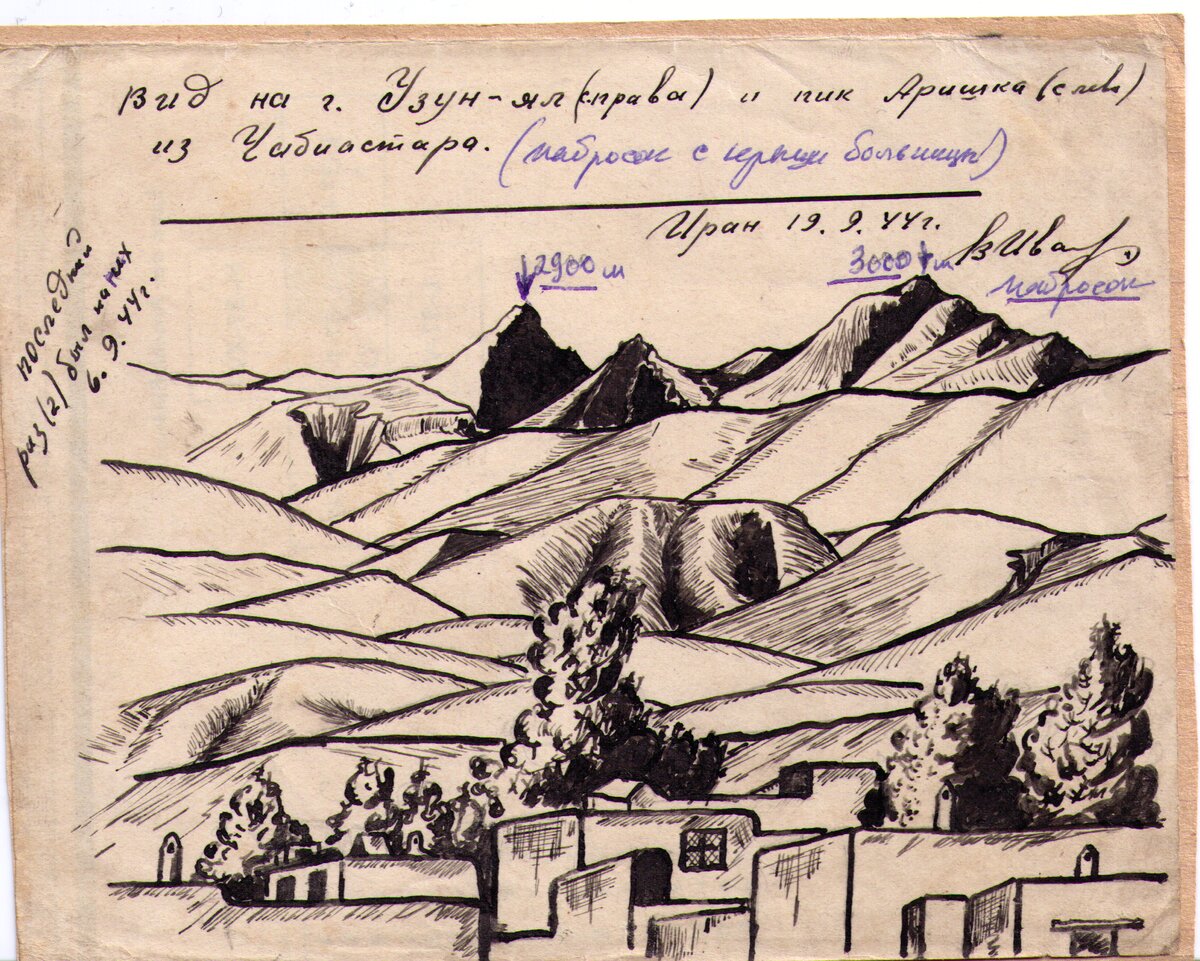 Вид на г. Узун-ял (справа) и пик Аришка (слева)
из Чибиастара. (набросок с крыши больницы)
Иран 19. 9. 44 г. ВИва
2900 м
3000 м
набросок
последний
раз (2) был на них
6. 9. 44 г.